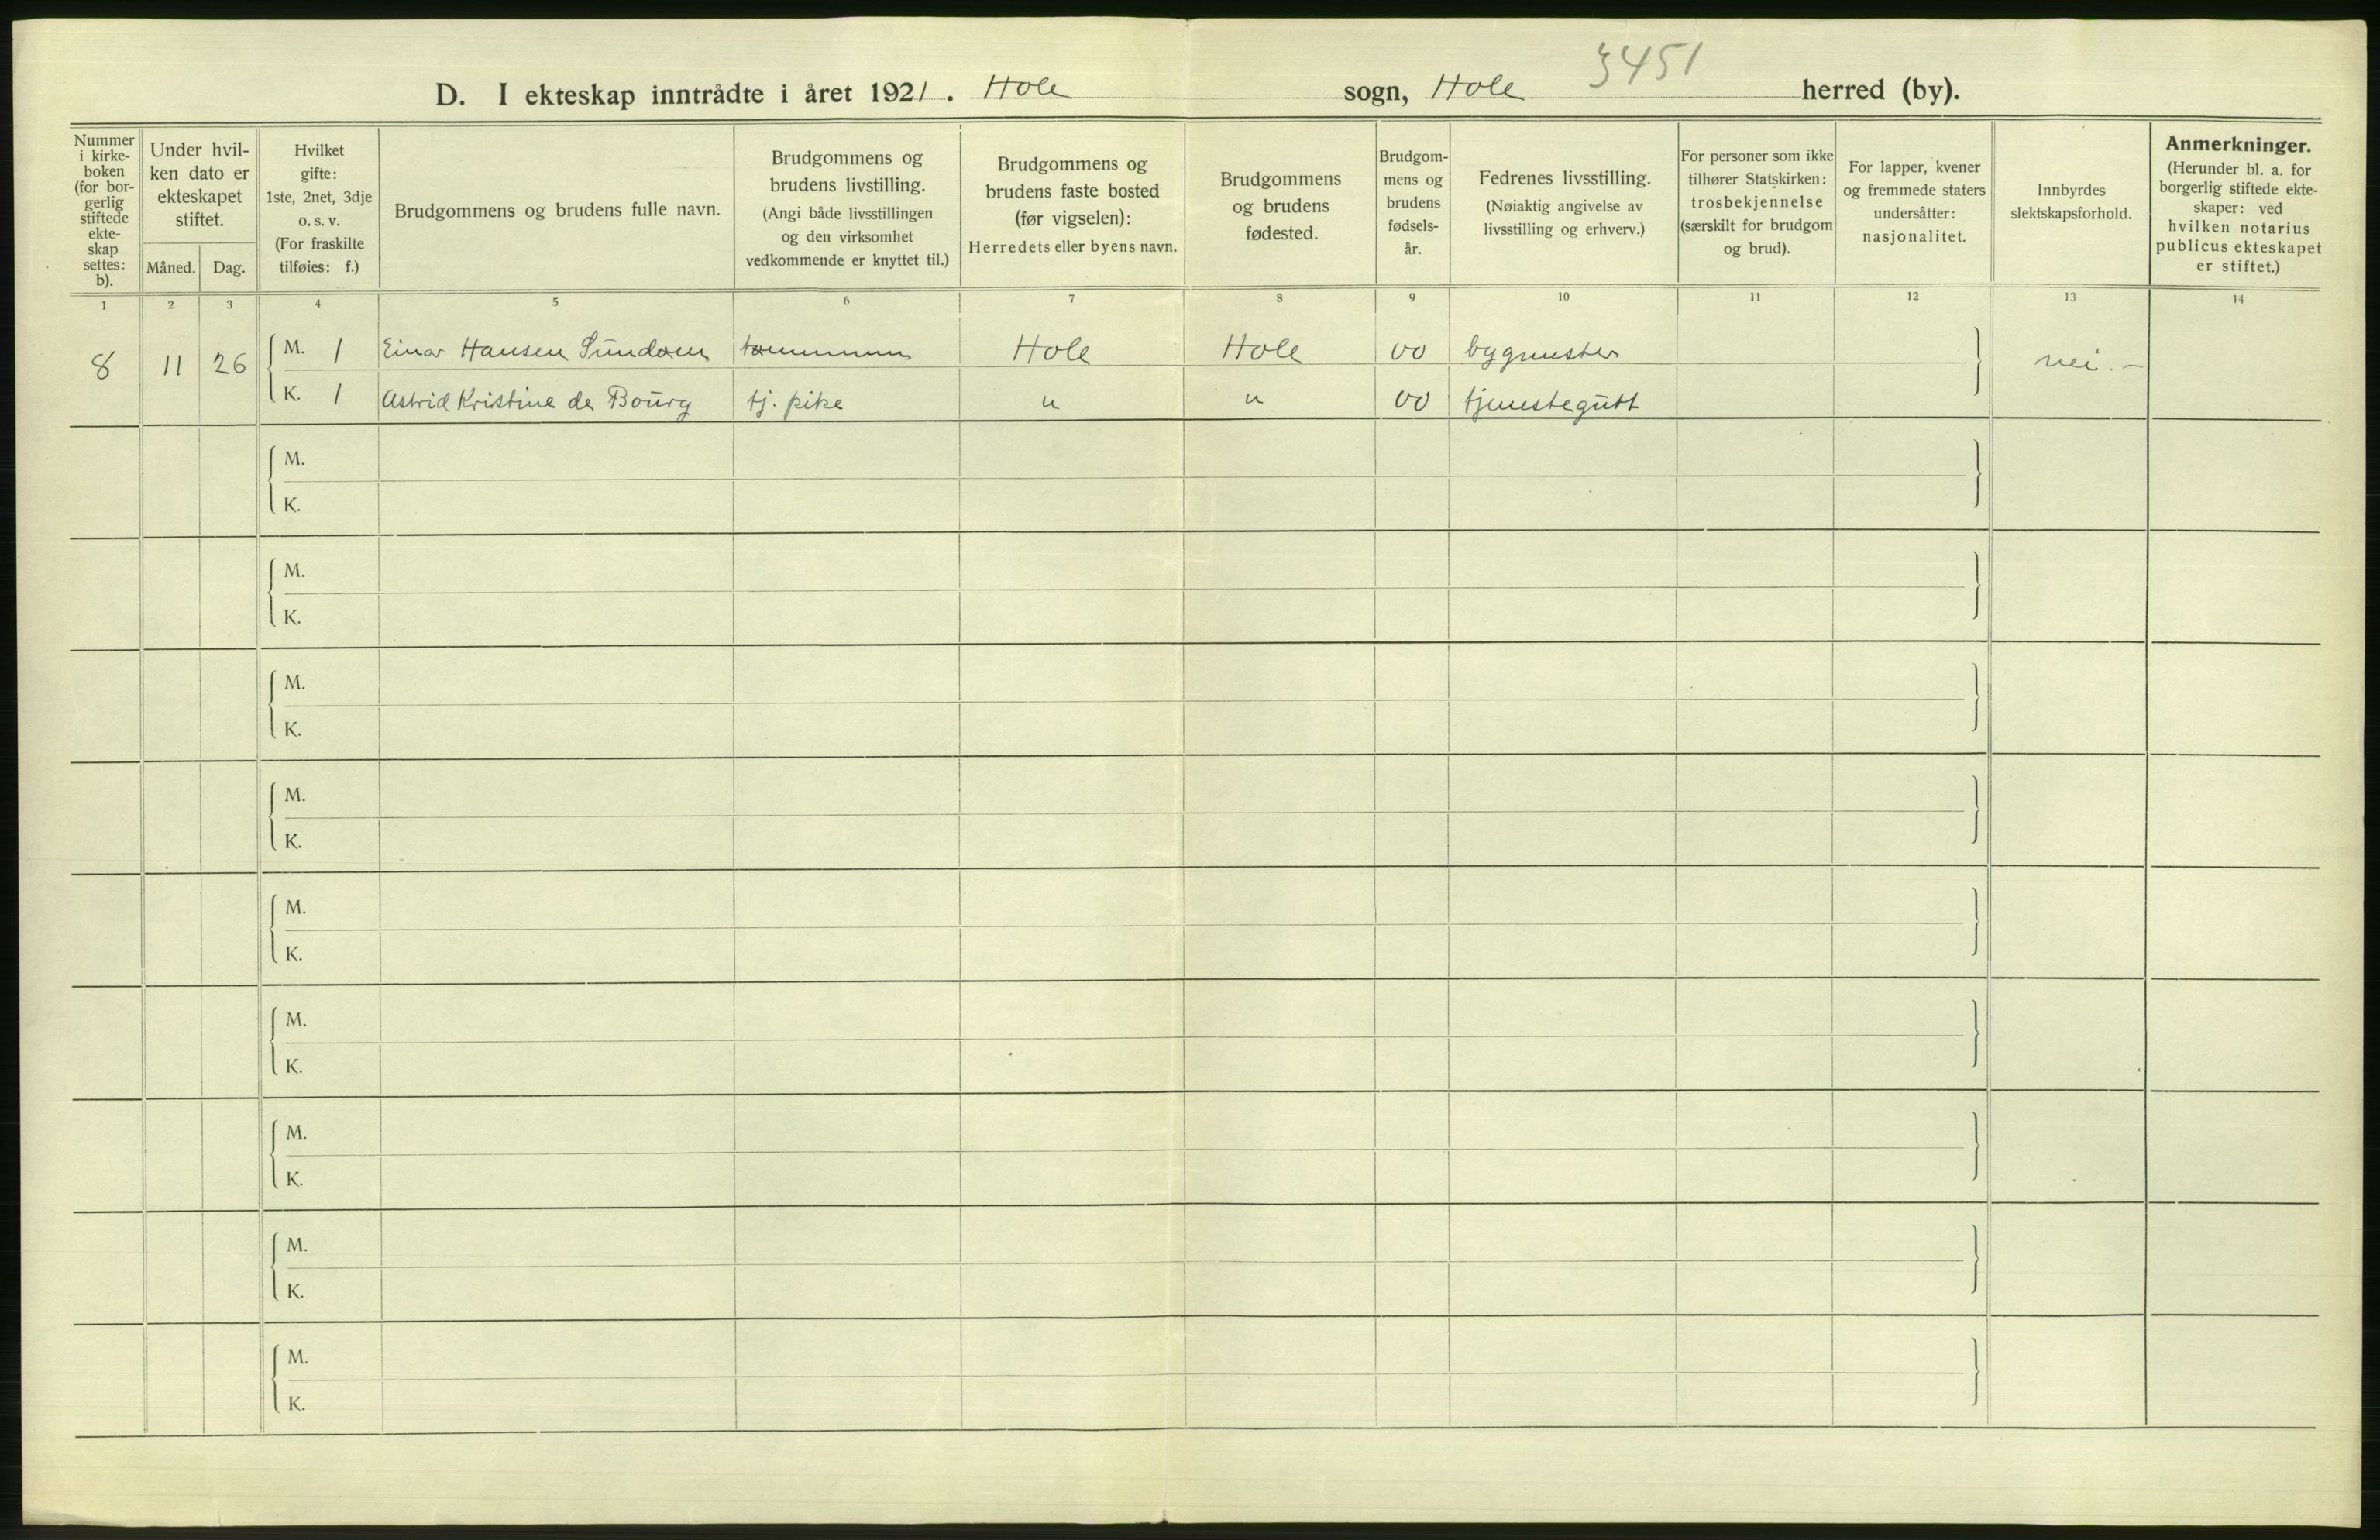 3451
D. I ekteskap inntrådte i året 1921. Hole sogn, Hole herred (by).
Nummer
i kirke-
boken
(for bor-
gerlig
stiftede
ekte-
skap
settes:
b).
Under hvil-
ken dato er
ekteskapet
stiftet.
Måned. Dag.
Hvilket
gifte:
1ste, 2net, 3dje
o. s. v.
(For fraskilte
tilføies: f.)
Brudgommens og brudens fulle navn.
Brudgommens og
brudens livstilling.
(Angi både livsstillingen
og den virksomhet
vedkommende er knyttet til.)
Brudgommens og
brudens faste bosted
(før vigselen):
Herredets eller byens navn.
Brudgommens
og brudens
fødested.
Brudgom-
mens og
brudens
fødsels-
år.
Fedrenes livsstilling.
(Nøiaktig angivelse av
livsstilling og erhverv.)
For personer som ikke
tilhører Statskirken:
trosbekjennelse
(særskilt for brudgom
og brud).
For lapper, kvener
og fremmede staters
undersåtter:
nasjonalitet.
Innbyrdes
slektskapsforhold.
Anmerkninger.
(Herunder bl. a. for
borgerlig stiftede ekte-
skaper: ved
hvilken notarius
publicus ekteskapet
er stiftet.)
1 2 3 4 5 6 7 8 9 10 11 12 13 14
8 11 26 M. 1 Einar Hansen Sundøen tømmerm Hole Hole 00 bygmester nei.-
K. 1 Astrid Kristine de Bourg tj. pike " " 00 tjenestegutt
M.
K.
M.
K.
M.
K.
M.
K.
M.
K.
M.
K.
M.
K.
M.
K.
M.
K.